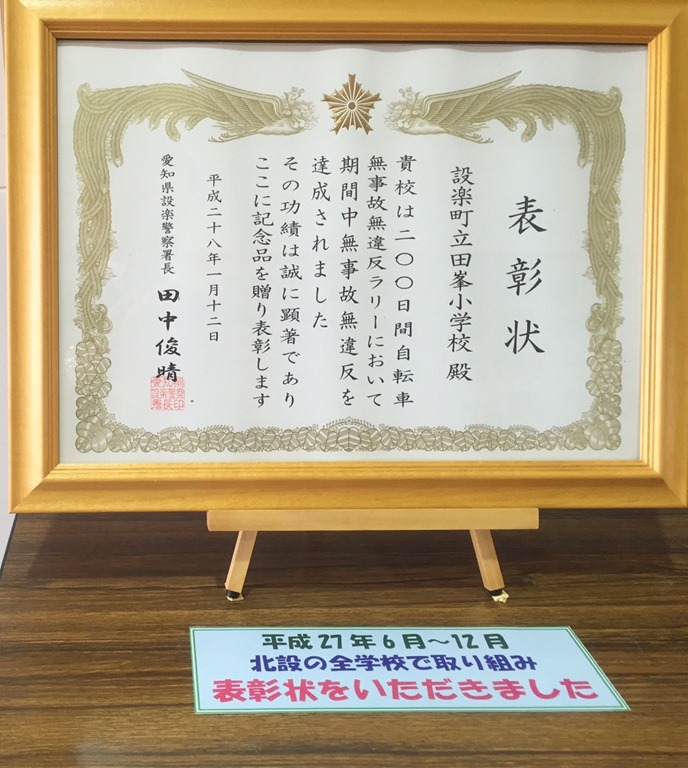 表彰状
設楽町立田峯小学校殿
貴校は二〇〇日間自転車
無事故無違反ラリーにおいて
期間中無事故無違反を
達成されました
その功績は誠に顕著であり
ここに記念品を贈り表彰します
平成二十八年一月十二日
愛知県設楽警察署長 田中俊晴
平成27年6月～12月
北設の全学校で取り組み
表彰状をいただきました